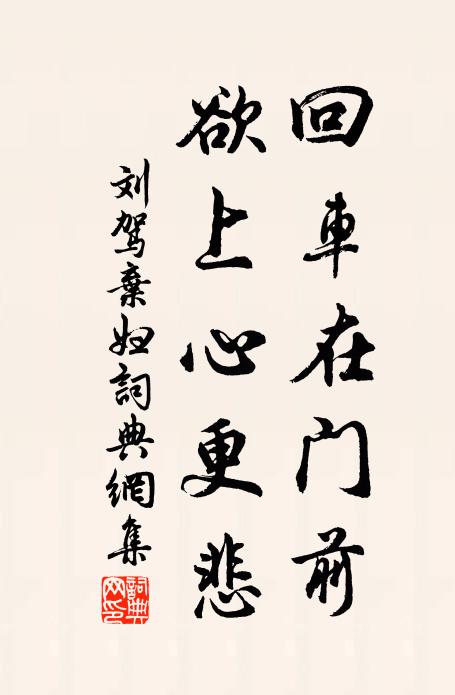 回車在门前
欲上心更悲
刘驾棄妇詞典網集
詞典网印